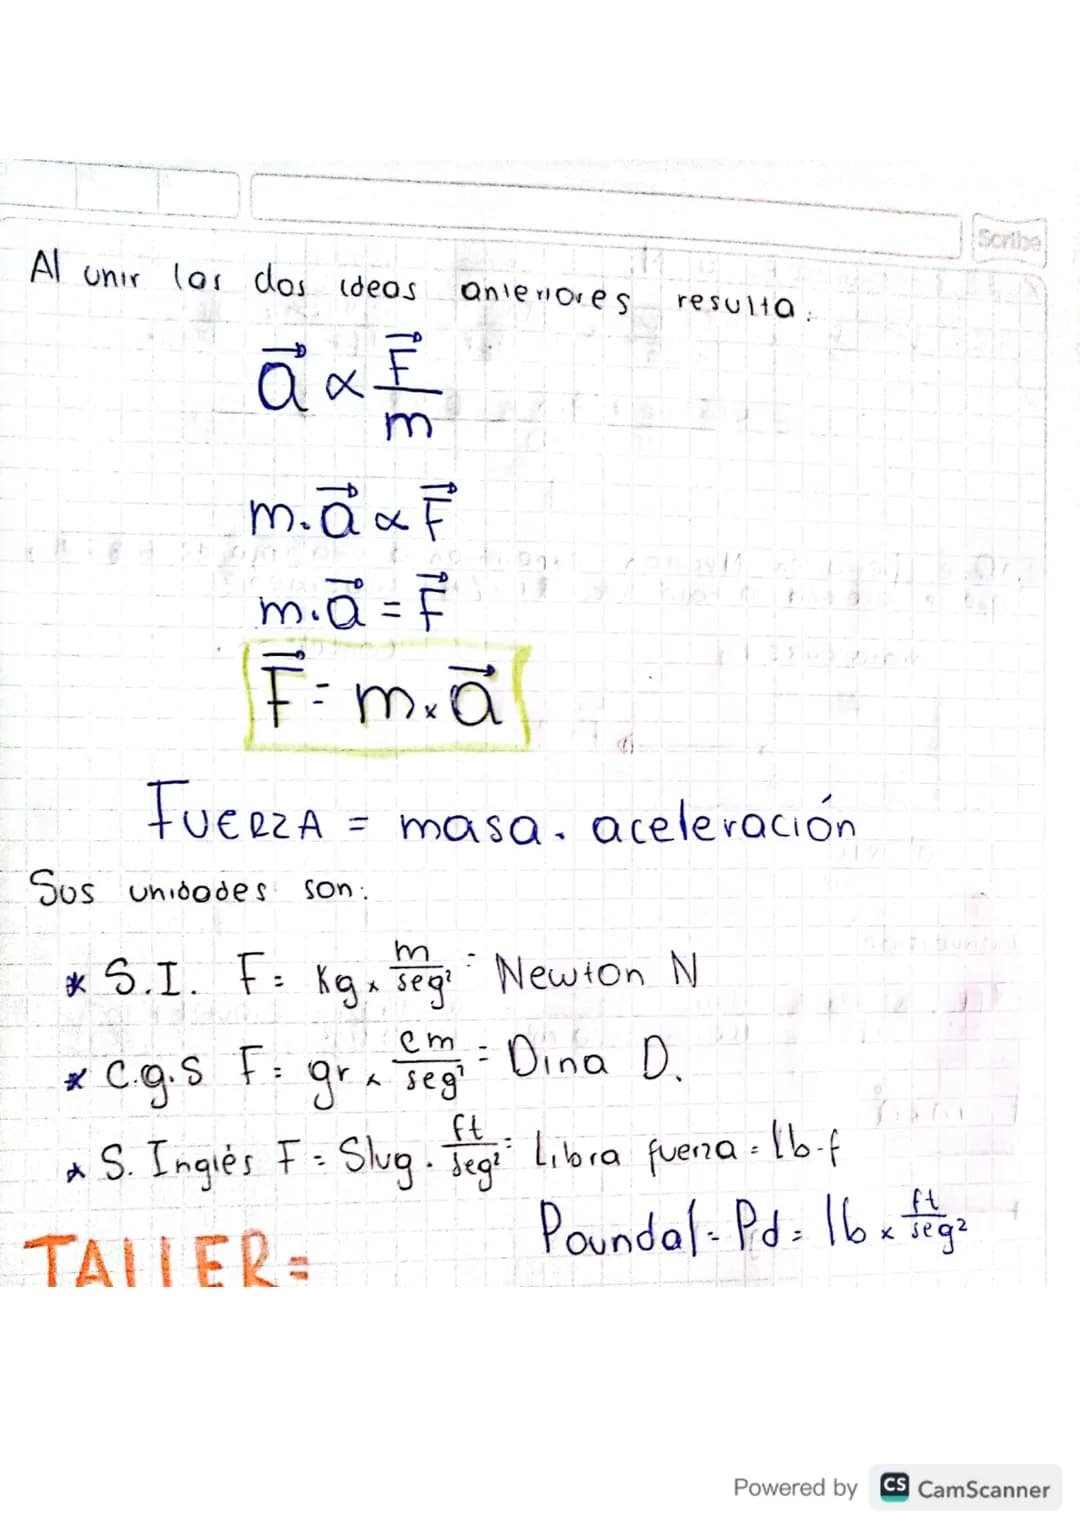 Scribe
Al unir las dos ideas anteriores resulta:
a⃗ ∝ F⃗/m
m.a⃗ ∝ F⃗
m.a⃗ = F⃗
F⃗ = m x a⃗
FUERZA = masa . aceleración
Sus unidades son:
* S.I. F = Kg x m/seg² = Newton N
* C.g.s F = gr x cm/seg² = Dina D.
* S. Inglés F = Slug . ft/seg² = Libra fuerza = lb-f
Poundal - Pd = lb x ft/seg²
TALLER=
Powered by CS CamScanner